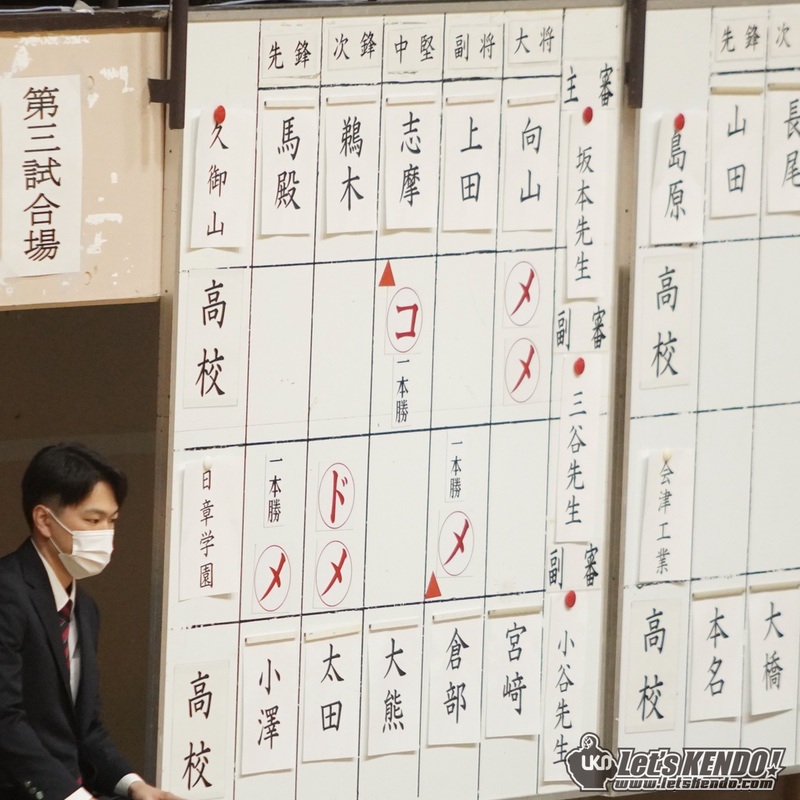 第三試合場
先鋒
次鋒
中堅
副将
大将
主審
坂本先生
副審
三谷先生
副審
小谷先生
久御山
高校
馬殿
鵜木
志摩
上田
向山
▲
コ
一本勝
メ
メ
日章学園
高校
一本勝
メ
ド
メ
一本勝
メ
▲
小澤
太田
大熊
倉部
宮﨑
先鋒
次
島原
高校
山田
長尾
会津工業
高校
本名
大橋
UKD
Let's KENDO!
www.letskendo.com